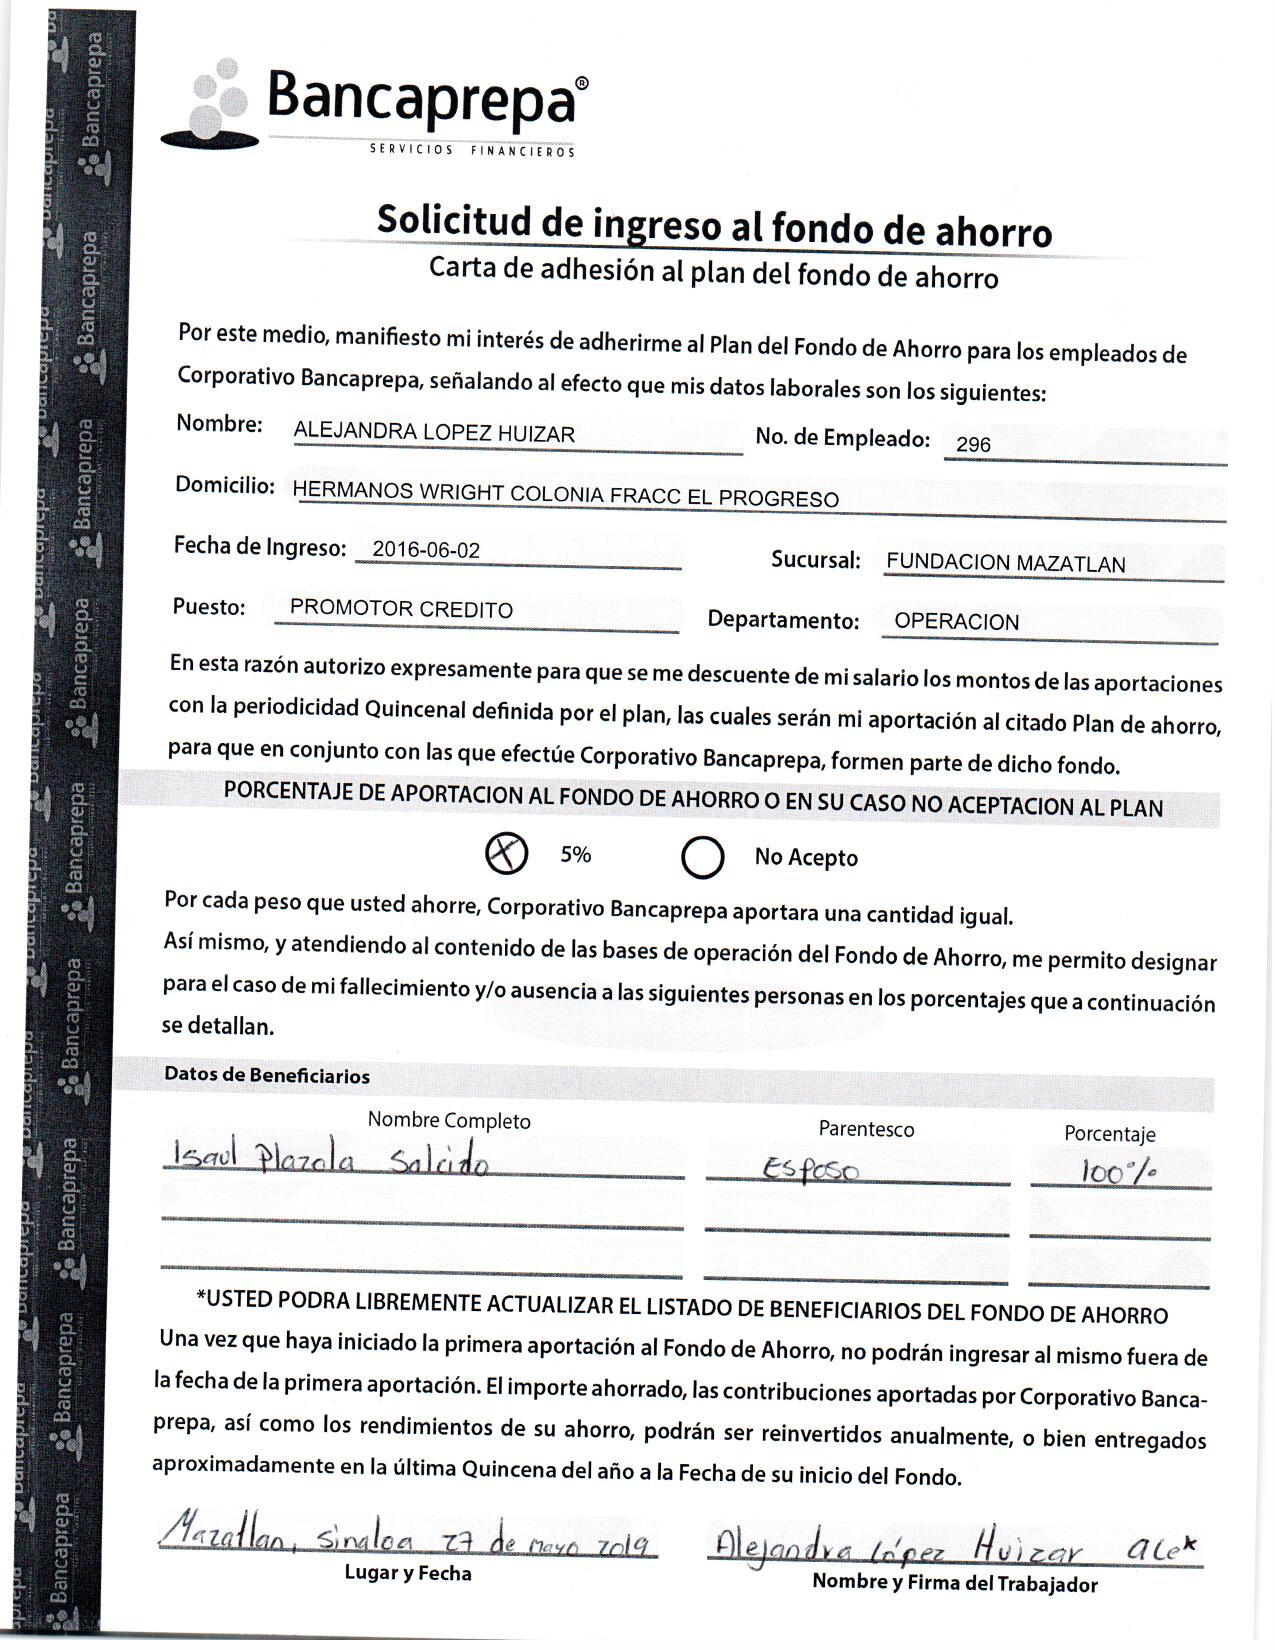 Bancaprepa®
SERVICIOS FINANCIEROS
Solicitud de ingreso al fondo de ahorro
Carta de adhesión al plan del fondo de ahorro
Por este medio, manifiesto mi interés de adherirme al Plan del Fondo de Ahorro para los empleados de
Corporativo Bancaprepa, señalando al efecto que mis datos laborales son los siguientes:
Nombre: ALEJANDRA LOPEZ HUIZAR No. de Empleado: 296
Domicilio: HERMANOS WRIGHT COLONIA FRACC EL PROGRESO
Fecha de Ingreso: 2016-06-02 Sucursal: FUNDACION MAZATLAN
Puesto: PROMOTOR CREDITO Departamento: OPERACION
En esta razón autorizo expresamente para que se me descuente de mi salario los montos de las aportaciones
con la periodicidad Quincenal definida por el plan, las cuales serán mi aportación al citado Plan de ahorro,
para que en conjunto con las que efectúe Corporativo Bancaprepa, formen parte de dicho fondo.
PORCENTAJE DE APORTACION AL FONDO DE AHORRO O EN SU CASO NO ACEPTACION AL PLAN
5% No Acepto
Por cada peso que usted ahorre, Corporativo Bancaprepa aportara una cantidad igual.
Así mismo, y atendiendo al contenido de las bases de operación del Fondo de Ahorro, me permito designar
para el caso de mi fallecimiento y/o ausencia a las siguientes personas en los porcentajes que a continuación
se detallan.
Datos de Beneficiarios
Nombre Completo Parentesco Porcentaje
Isaul Plazola Salcido Esposo 100%
*USTED PODRA LIBREMENTE ACTUALIZAR EL LISTADO DE BENEFICIARIOS DEL FONDO DE AHORRO
Una vez que haya iniciado la primera aportación al Fondo de Ahorro, no podrán ingresar al mismo fuera de
la fecha de la primera aportación. El importe ahorrado, las contribuciones aportadas por Corporativo Banca-
prepa, así como los rendimientos de su ahorro, podrán ser reinvertidos anualmente, o bien entregados
aproximadamente en la última Quincena del año a la Fecha de su inicio del Fondo.
Mazatlan, Sinaloa 27 de mayo 2019 Alejandra López Huizar Ale*
Lugar y Fecha Nombre y Firma del Trabajador